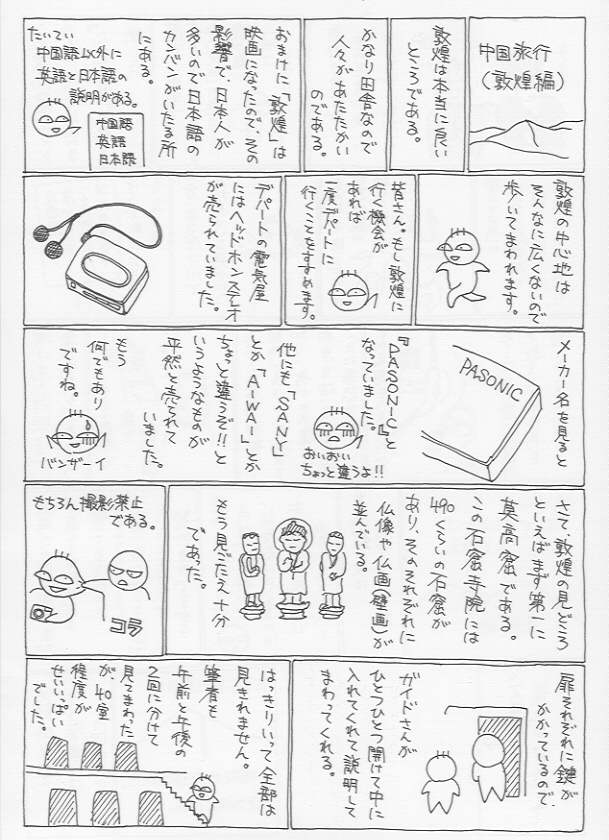 中国旅行
(敦煌編)
敦煌は本当に良い
ところである。
かなり田舎なので
人々があたたかい
のである。
おまけに「敦煌」は
映画になったので、その
影響で、日本人が
多いので日本語の
カンバンがいたる所
にある。
たいてい
中国語以外に
英語と日本語の
説明がある。
中国語
英語
日本語
敦煌の中心地は
そんなに広くないので
歩いてまわれます。
皆さん。もし敦煌に
行く機会が
あれば
一度デパートに
行くことをすすめます。
デパートの電気屋
にはヘッドホンステレオ
が売られていました。
メーカー名を見ると
PASONIC
『PASSONIC』と
なっていました。
おいおい
ちょっと違うよ!!
他にも「SANY」
とか「AIWAI」とか
ちょっと違うぞ!!と
いうようなものが
平然と売られて
いました。
もう
何でもあり
ですね。
バンザーイ
さて、敦煌の見どころ
といえばまず第一に
莫高窟である。
この石窟寺院には
490くらいの石窟が
あり、そのそれぞれに
仏像や仏画(壁画)が
並んでいる。
もう見ごたえ十分
であった。
もちろん撮影禁止
である。
コラ
扉それぞれに鍵が
かかっているので、
ガイドさんが
ひとつひとつ開けて中に
入れてくれて説明して
まわってくれる。
はっきりいって全部は
見きれません。
筆者も
午前と午後の
2回に分けて
見てまわった
が、40室
程度が
せいいっぱい
でした。